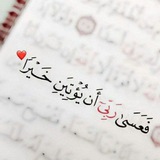 فَعَسَىٰ رَبِّي أَن يُؤْتِيَنِ خَيْرًا